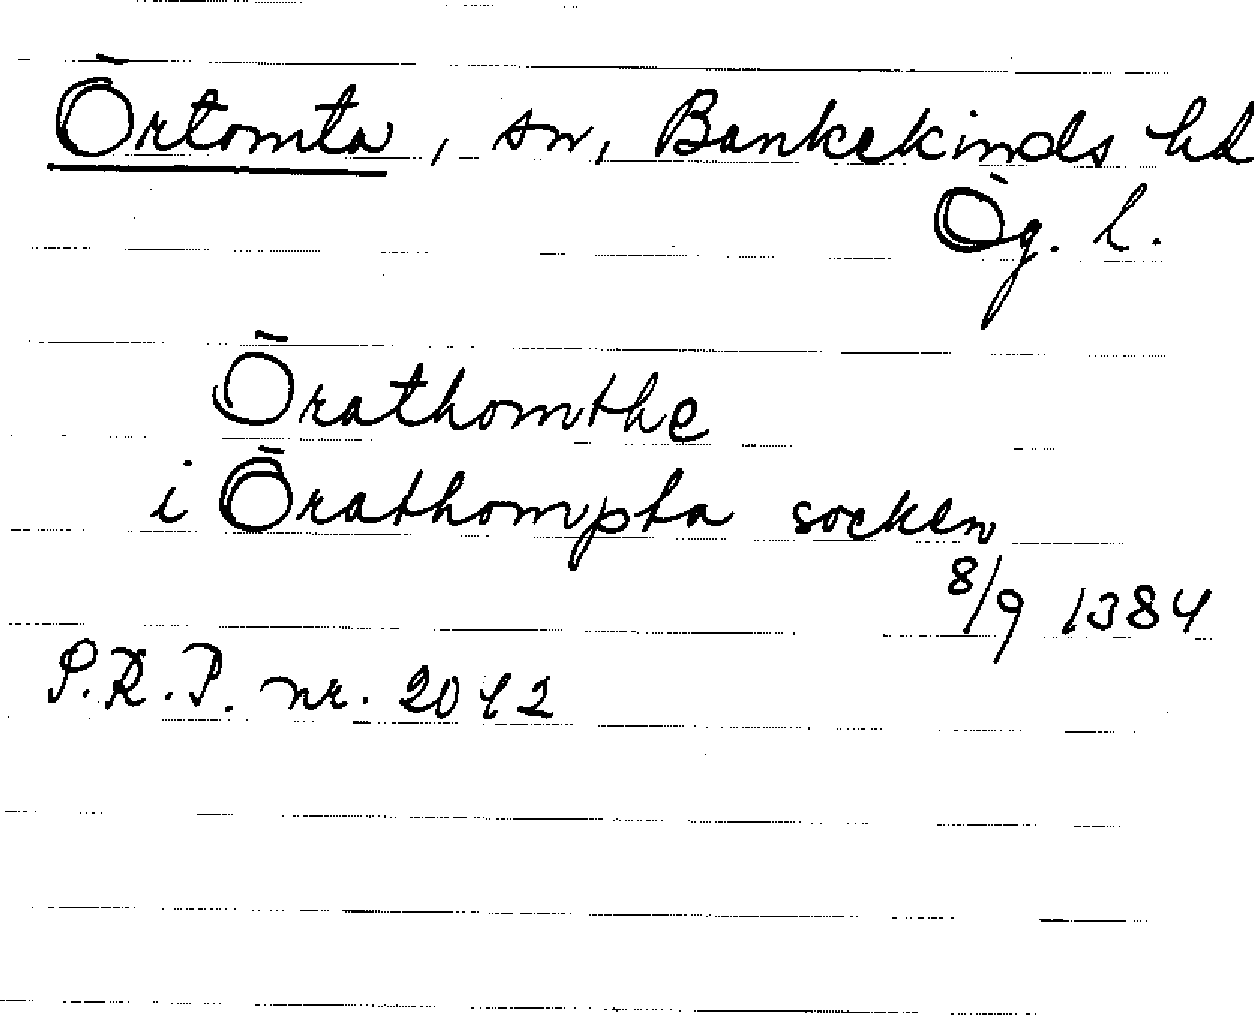 Örtomta, sn, Bankekinds hd
Ög. l.
Örathomthe
i Örathompta socken
8/9 1384
S.R.P. nr. 2042